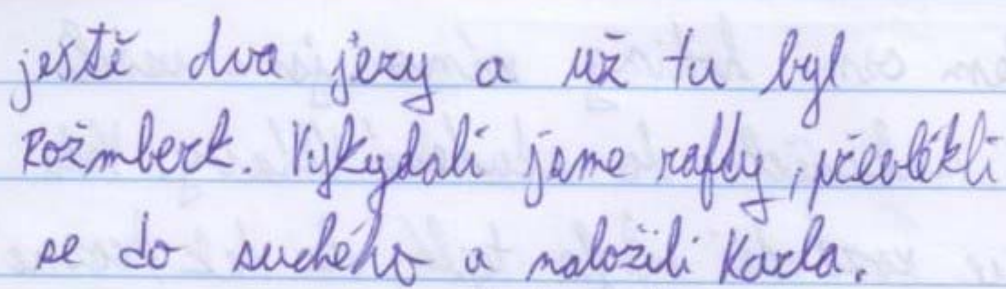 ještě dva jezy a už tu byl
Rožmberk. Vykydali jsme rafty, převlékli
se do suchého a naložili Karla.